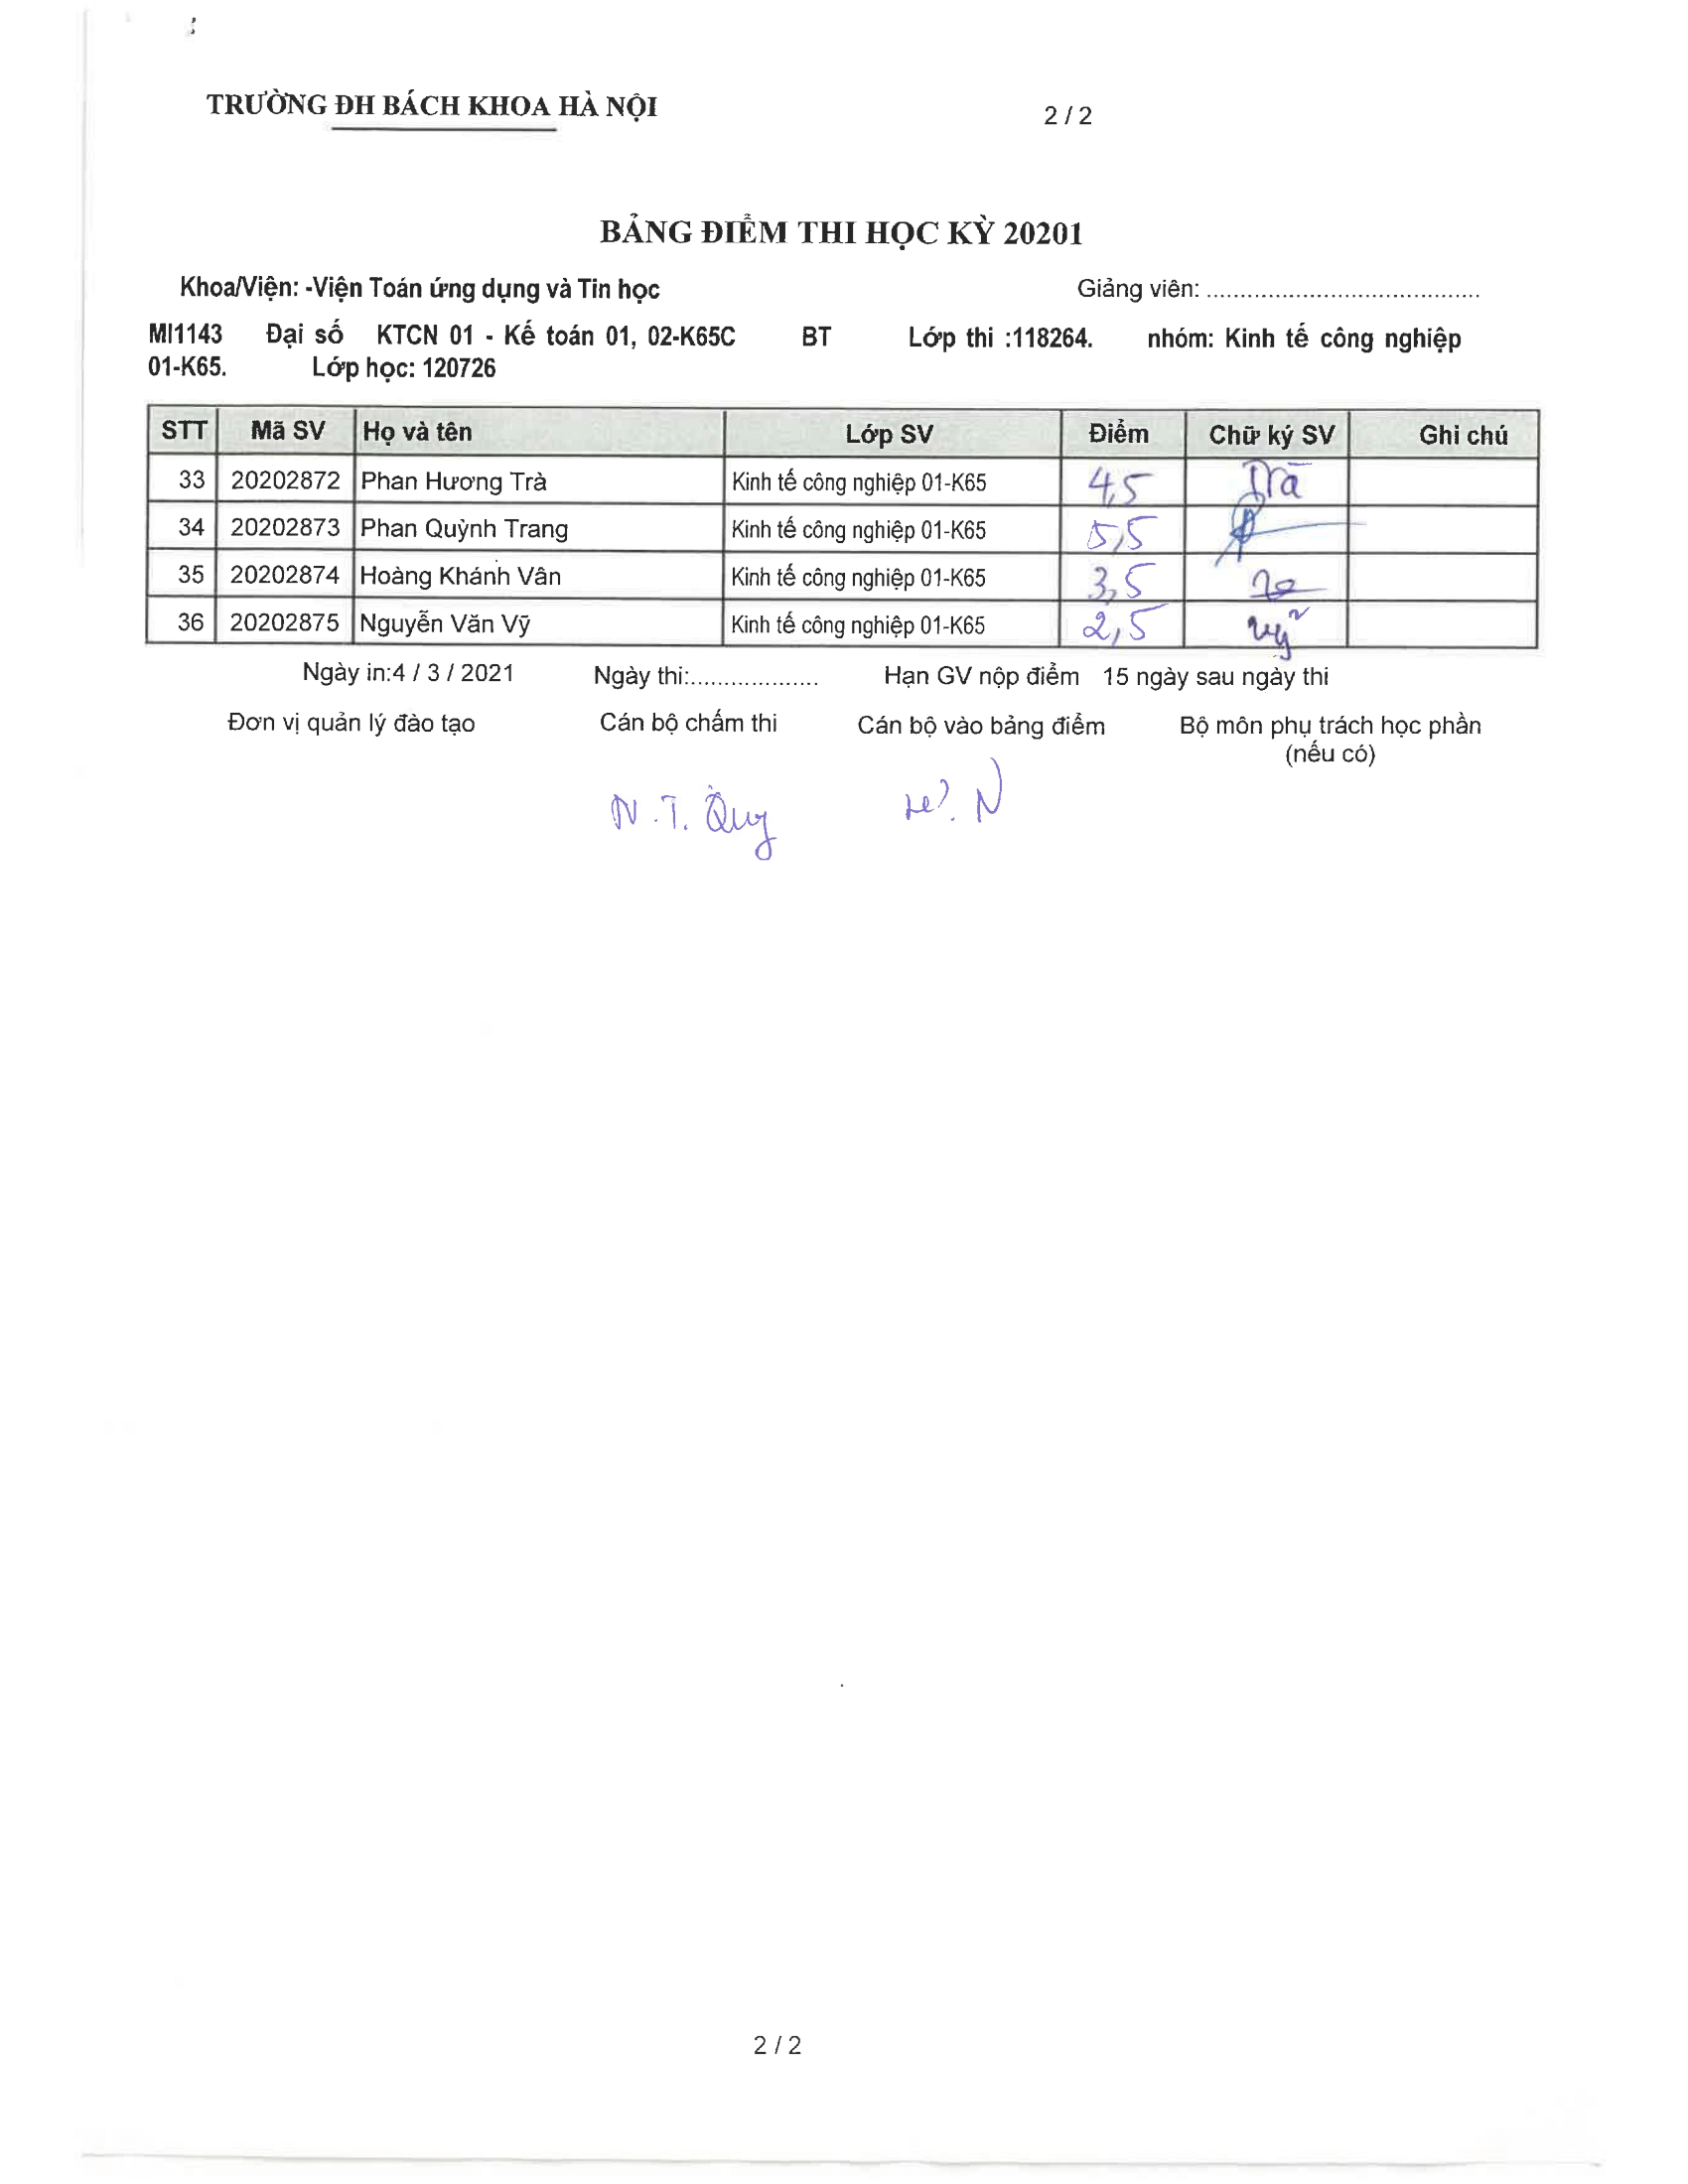 TRƯỜNG ĐH BÁCH KHOA HÀ NỘI 2 / 2
BẢNG ĐIỂM THI HỌC KỲ 20201
Khoa/Viện: -Viện Toán ứng dụng và Tin học Giảng viên: ........................................
MI1143 Đại số KTCN 01 - Kế toán 01, 02-K65C BT Lớp thi :118264. nhóm: Kinh tế công nghiệp
01-K65. Lớp học: 120726
STT Mã SV Họ và tên Lớp SV Điểm Chữ ký SV Ghi chú
33 20202872 Phan Hương Trà Kinh tế công nghiệp 01-K65 4,5 Trà
34 20202873 Phan Quỳnh Trang Kinh tế công nghiệp 01-K65 5,5
35 20202874 Hoàng Khánh Vân Kinh tế công nghiệp 01-K65 3,5
36 20202875 Nguyễn Văn Vỹ Kinh tế công nghiệp 01-K65 2,5 Vỹ
Ngày in:4 / 3 / 2021 Ngày thi:................... Hạn GV nộp điểm 15 ngày sau ngày thi
Đơn vị quản lý đào tạo Cán bộ chấm thi Cán bộ vào bảng điểm Bộ môn phụ trách học phần
(nếu có)
N.T. Quy
2 / 2